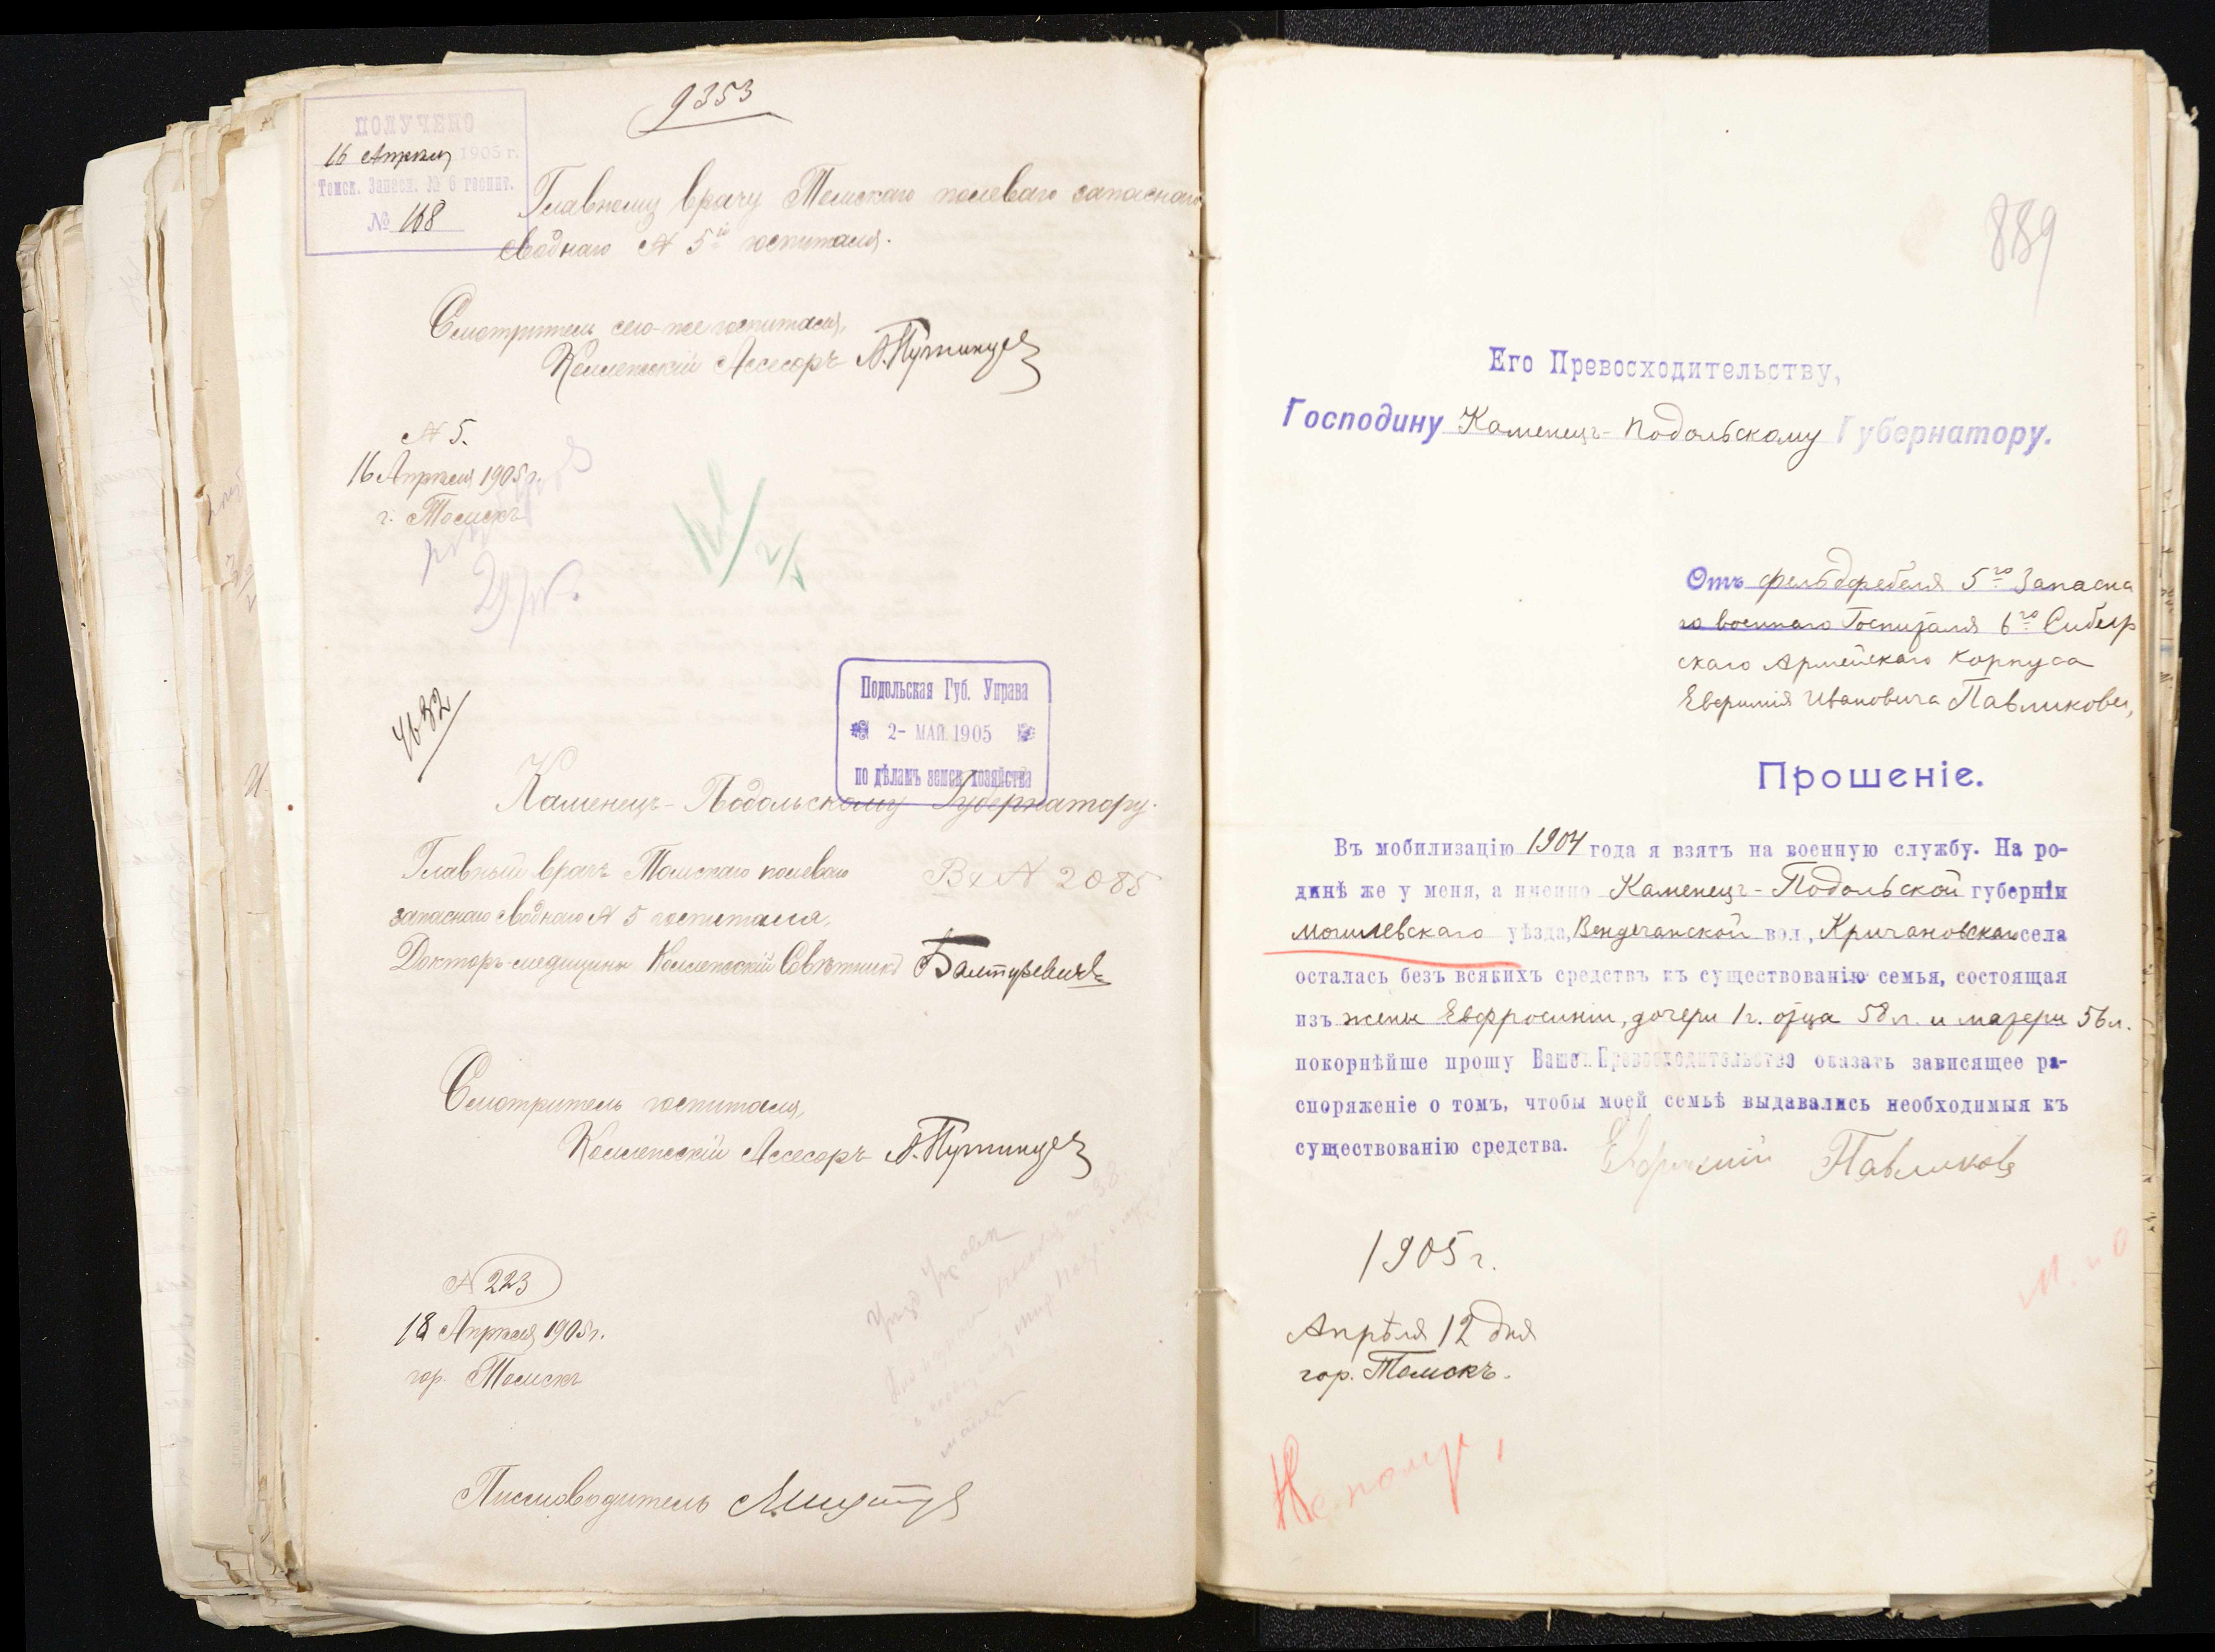 9353
ПОЛУЧЕНО
16 Апрѣля 1905 г.
Томск. Запасн. № 6 госпит.
№ 168
Главному врачу Томскаго полеваго запаснаго
своднаго № 5го госпиталя.
Смотритель сего-же госпиталя,
Коллежскій Ассесоръ
№ 5.
16 Апрѣля 1905 г.
г. Томскъ
4632
Подольская Губ. Управа
2- МАЙ 1905
по дѣламъ земск. хозяйства
Каменецъ-Подольскому Губернатору.
Главный врачъ Томскаго полеваго
Вх № 2085
запаснаго своднаго № 5 госпиталя,
Докторъ-медицины Коллежскій Совѣтникъ
Смотритель госпиталя,
Коллежскій Ассесоръ
№ 223
18 Апрѣля 1905 г.
гор. Томскъ
Письмоводитель
889
Его Превосходительству,
Господину Каменецъ-Подольскому Губернатору.
Отъ фельдфебеля 5го Запасна
го военнаго Госпиталя 6го Сибир
скаго Армейскаго Корпуса
Евфимія Ивановича Павликова,
Прошеніе.
Въ мобилизацію 1904 года я взятъ на военную службу. На ро-
динѣ же у меня, а именно Каменецъ-Подольской губерніи
Могилевскаго уѣзда, Вендичанской вол., Кричановскаго села
осталась безъ всякихъ средствъ къ существованію семья, состоящая
изъ жены Евфросиніи, дочери 1 г. отца 58 л. и матери 56 л.
покорнѣйше прошу Ваше Превосходительство оказать зависящее ра-
споряженіе о томъ, чтобы моей семьѣ выдавались необходимыя къ
существованію средства. Евфимій Павликовъ
1905 г.
Апрѣля 12 дня
гор. Томскъ.